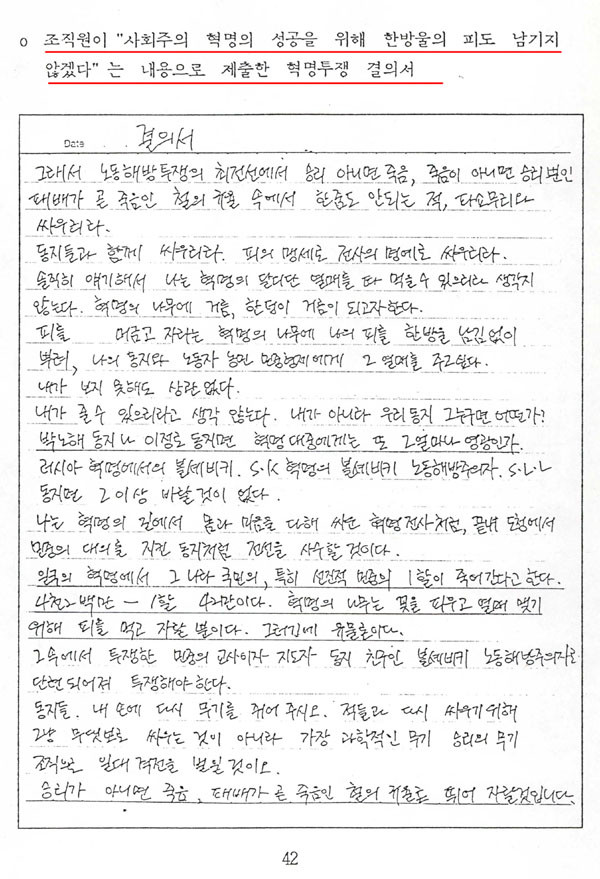 o 조직원이 "사회주의 혁명의 성공을 위해 한방울의 피도 남기지
않겠다"는 내용으로 제출한 혁명투쟁 결의서
Date 결의서
그래서 노동해방투쟁의 최전선에서 승리 아니면 죽음, 죽음이 아니면 승리뿐인
패배가 곧 죽음인 철의 규율 속에서 한줌도 안되는 적, 타소무리와
싸우리라.
동지들과 함께 싸우리라. 피의 맹세로 전사의 명예로 싸우리라.
솔직히 얘기해서 나는 혁명의 달디단 열매를 따 먹을 수 있으리라 생각지
않는다. 혁명의 나무에 거름, 한덩이 거름이 되고자 한다.
피를 머금고 자라는 혁명의 나무에 나의 피를 한방울 남김없이
뿌려, 나의 동지와 노동자 농민 민중형제에게 그 열매를 주고싶다.
내가 보지 못해도 상관 없다.
내가 줄 수 있으리라고 생각 않는다. 내가 아니라 우리동지 그누구면 어떤가?
박노해 동지나 이정로 동지면 혁명대중에게는 또 그얼마나 영광인가.
러시아 혁명에서의 볼세비키. S.K 혁명의 볼세비키 노동해방주의자. S.L.L
동지면 그 이상 바랄것이 없다.
나는 혁명의 길에서 몸과 마음을 다해 싸운 혁명전사처럼, 끝내 도청에서
민중의 대의를 지킨 동지처럼 전선을 사수할 것이다.
일국의 혁명에서 그 나라 국민의, 특히 선진적 민중의 1할이 죽어간다고 한다.
4천2백만 - 1할 42만이다. 혁명의 나무는 꽃을 피우고 열매 맺기
위해 피를 먹고 자랄 뿐이다. 그러길에 유물론이다.
그속에서 투쟁한 민중의 교사이자 지도자 동지 친구인 볼세비키 노동해방주의자로
단련되어져 투쟁해야 한다.
동지들. 내 손에 다시 무기를 쥐어 주시오. 적들과 다시 싸우기위해
그냥 무댓보로 싸우는 것이 아니라 가장 과학적인 무기 승리의 무기
조직으로 일대 격전을 벌일 것이오.
승리가 아니면 죽음, 패배가 곧 죽음인 철의 규율로 뛰어 자랄것입니다.
42